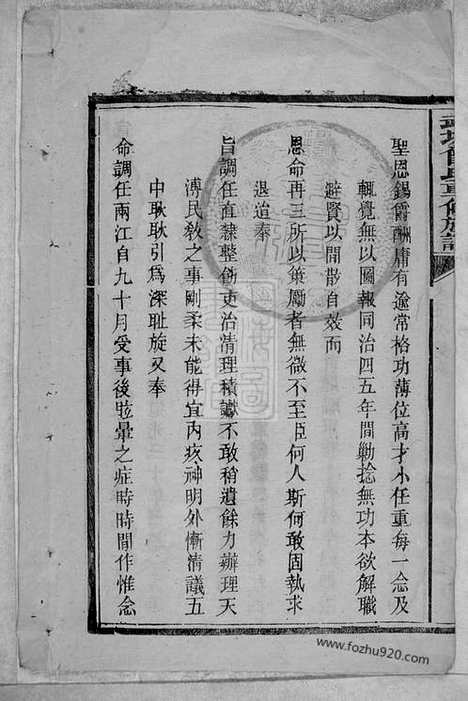 聖恩錫爵酬庸有逾常格功薄位高才小任重每一念及
輒覺無以圖報同治四五年間勦捻無功本欲解職
避賢以閒散自效而
恩命再三所以策勵者無微不至臣何人斯何敢固執求
退迨奉
旨調任直隸整飭吏治清理積讞不敢稍遺餘力辦理天
津民教之事剛柔未能得宜內疚神明外慚清議五
中耿耿引為深恥旋又奉
命調任兩江自九十月受事後眩暈之症時時間作惟念
www.fozhu920.com